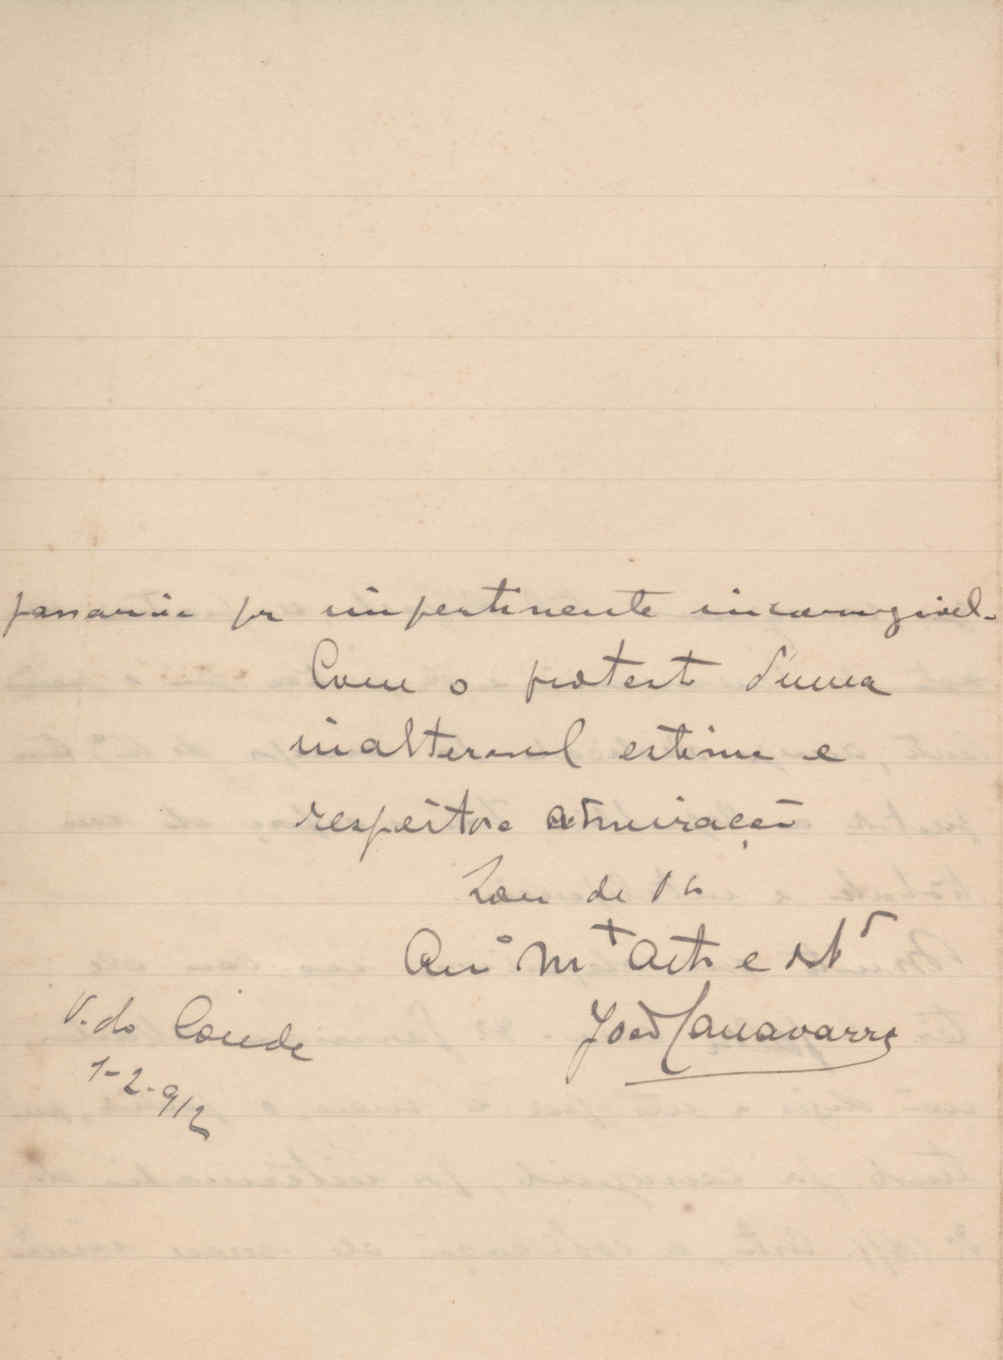 passaria por impertinente incorrigivel.
Com o protesto d'uma
inalteravel estima e
respeitosa admiração
Sou de
Am.º M.to At.to e Ob.r
João Canavarro
V. do Conde
1-2-912